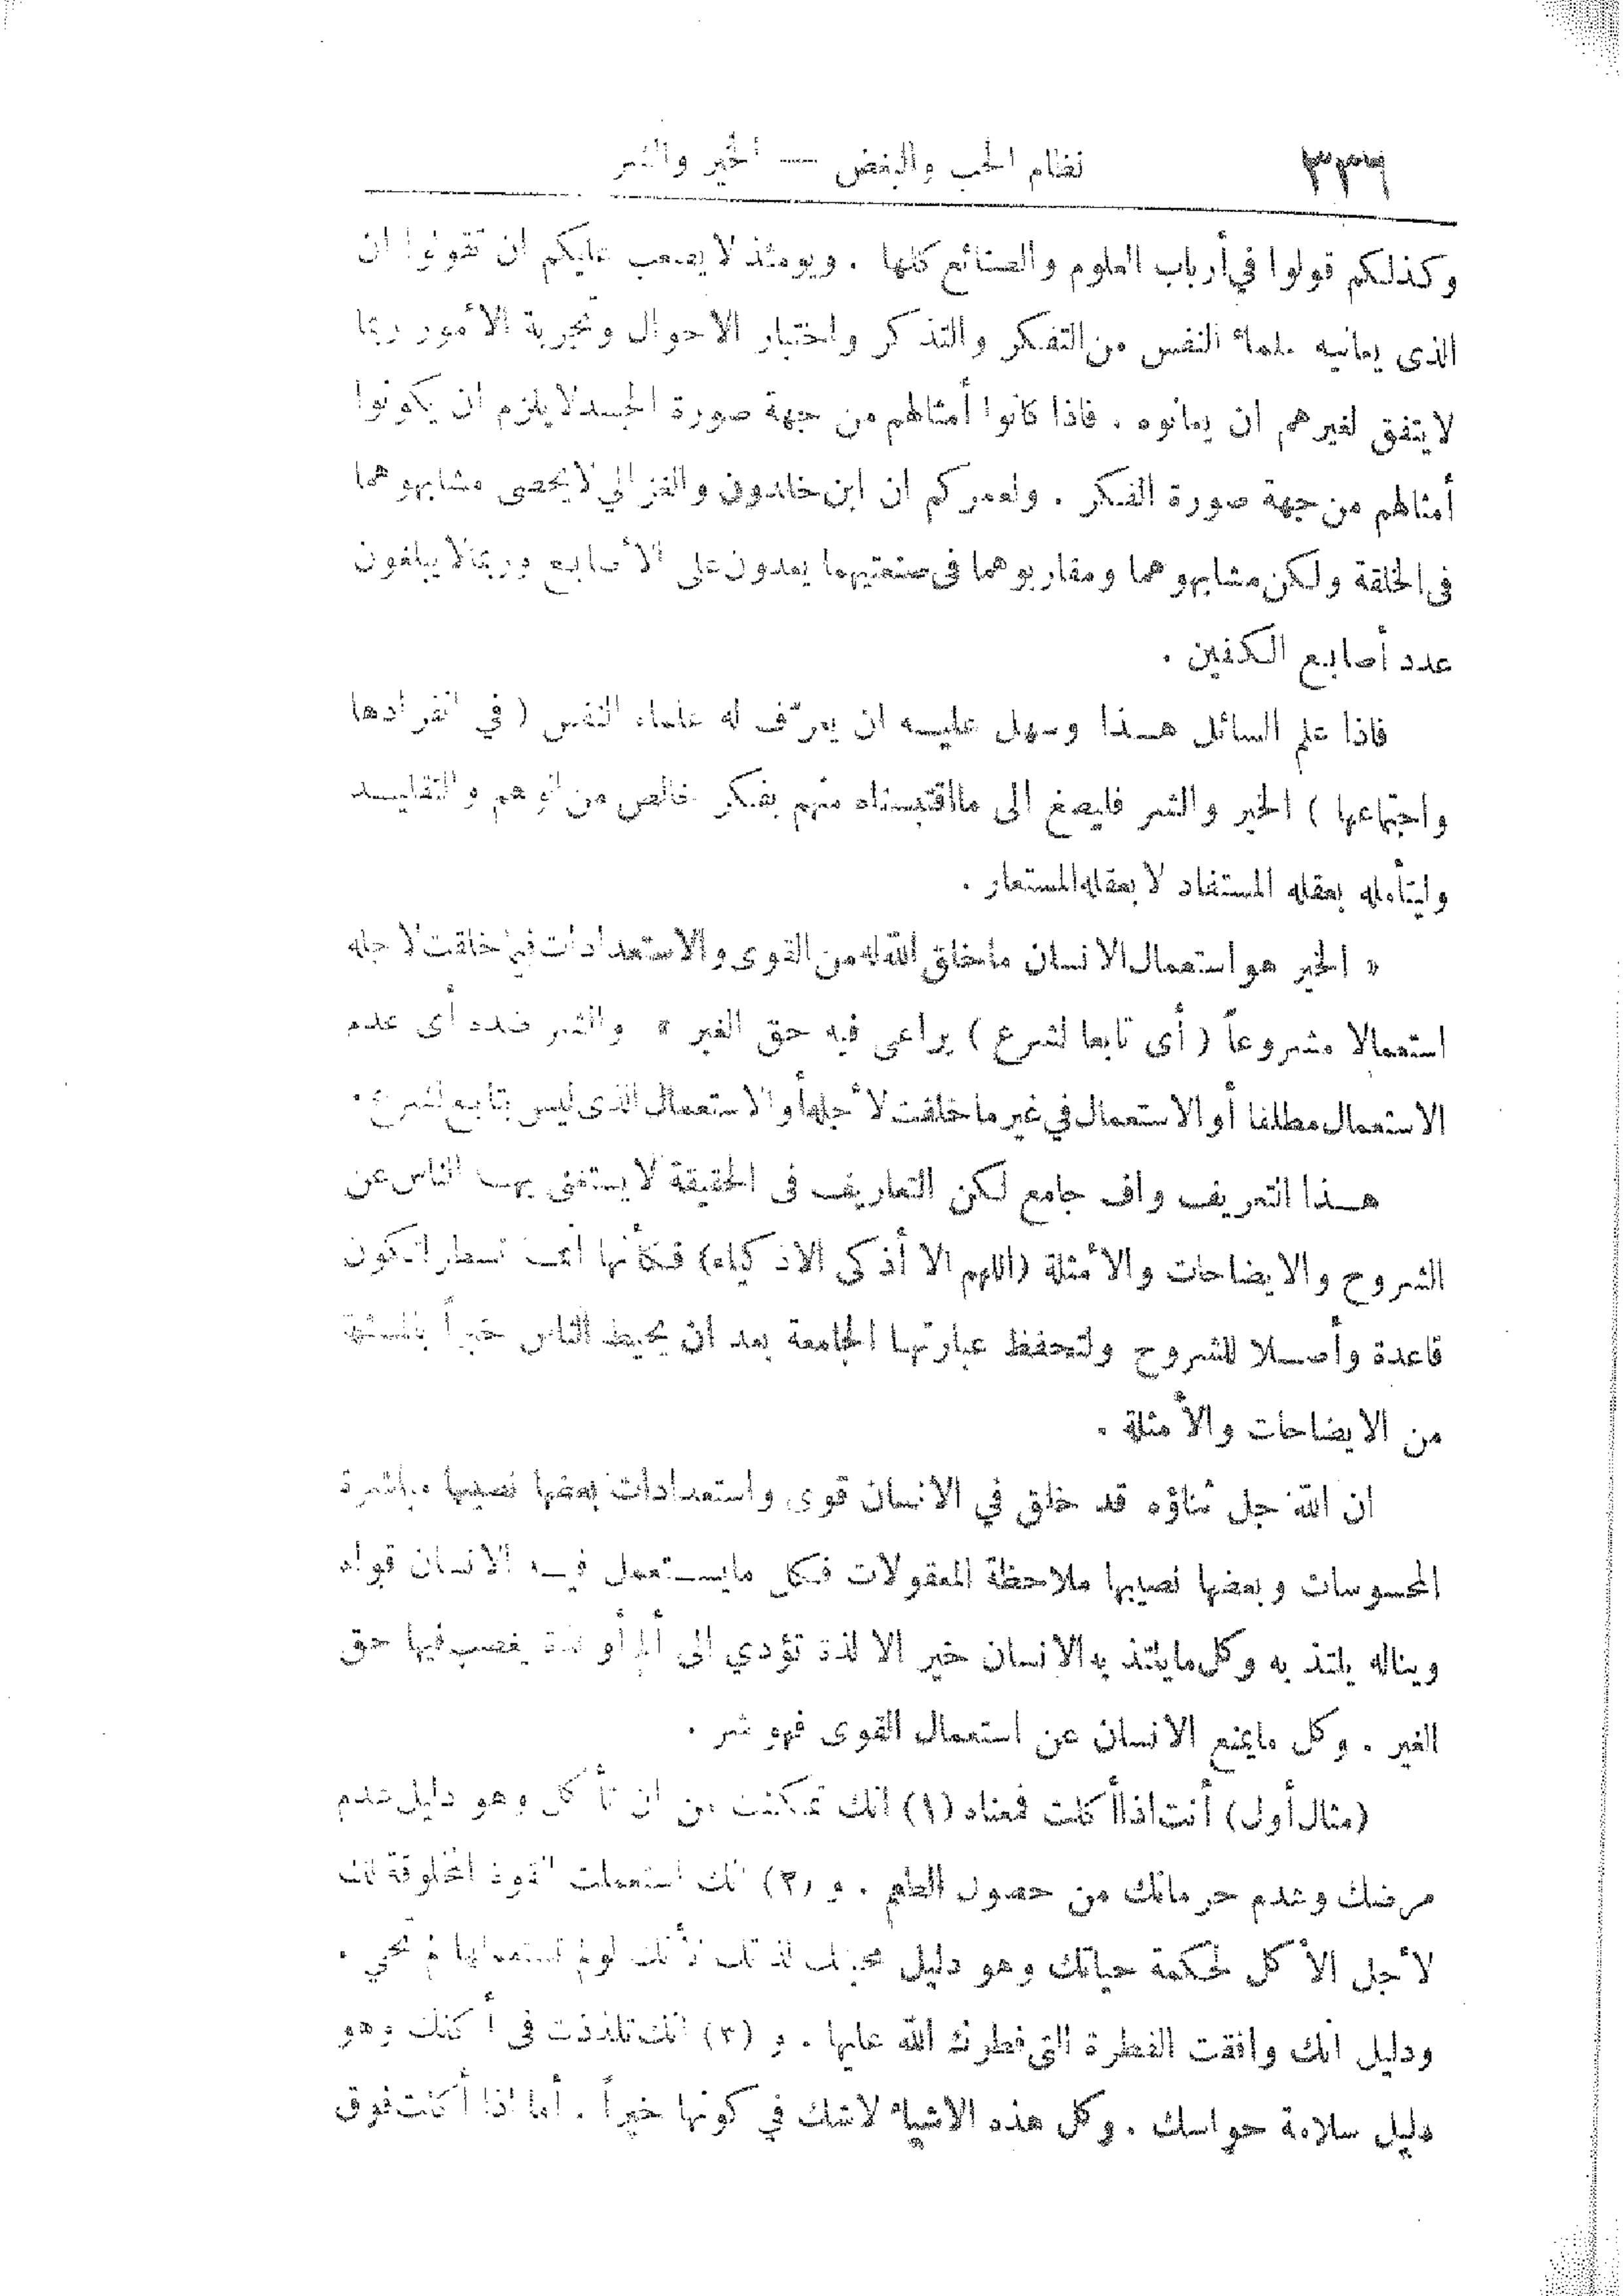 ٣٣٦
نظام الحب والبغض — الخير والشر
وكذلكم قولوا في أرباب العلوم والصنائع كلها . ويومئذ لا يصعب عليكم ان تقولوا ان
الذى يعانيه علماء النفس من التفكر والتذكر واختبار الاحوال وتجربة الأمور ربما
لا يتفق لغيرهم ان يعانوه . فاذا كانوا أمثالهم من جهة صورة الجسد لا يلزم ان يكونوا
أمثالهم من جهة صورة الفكر . ولعمركم ان ابن خلدون والغزالي لا يحصى مشابهوهما
فى الخلقة ولكن مشابهوهما ومقاربوهما فى صنعتيهما يعدون على الأصابع وربما لا يبلغون
عدد أصابع الكفين .
فاذا علم السائل هذا وسهل عليه ان يعرّف له علماء النفس ( في انفرادها
واجتماعها ) الخير والشر فليصغ الى ما اقتبسناه منهم بفكر خالص من الوهم والتقليد
وليتأمله بعقله المستفاد لا بعقله المستعار .
« الخير هو استعمال الانسان ما خلق الله له من القوى والاستعدادات فيما خلقت لاجله
استعمالا مشروعاً ( أى تابعا لشرع ) يراعى فيه حق الغير » والشر ضده أى عدم
الاستعمال مطلقا أو الاستعمال في غير ما خلقت لأجله أو الاستعمال الذى ليس بتابع لشرع .
هذا التعريف واف جامع لكن التعاريف فى الحقيقة لا يستغنى بها الناس عن
الشروح والايضاحات والأمثلة (اللهم الا أذكى الاذكياء) فكأنها انما تسطر لتكون
قاعدة وأصلا للشروح ولتحفظ عبارتها الجامعة بعد ان يحيط الناس خبراً
من الايضاحات والأمثلة .
ان الله جل ثناؤه قد خلق في الانسان قوى واستعدادات بعضها نصيبها مباشرة
المحسوسات وبعضها نصيبها ملاحظة المعقولات فكل ما يستعمل فيه الانسان قواه
ويناله يلتذ به وكل ما يلتذ به الانسان خير الا لذة تؤدي الى ألم أو لذة يغصب فيها حق
الغير . وكل ما يمنع الانسان عن استعمال القوى فهو شر .
(مثال أول) أنت اذا أكلت فمعناه (١) انك تمكنت من ان تأكل وهو دليل عدم
مرضك وعدم حرمانك من حصول الطعام . و (٢) انك استعملت القوة المخلوقة لك
لأجل الأكل لحكمة حياتك وهو دليل محبتك لذاتك لأنك لو لم تستعملها لم تحي .
ودليل انك وافقت الفطرة التى فطرك الله عليها . و (٣) انك تلذذت فى أكلك وهو
دليل سلامة حواسك . وكل هذه الاشياء لاشك في كونها خيراً . أما اذا أكلت فوق